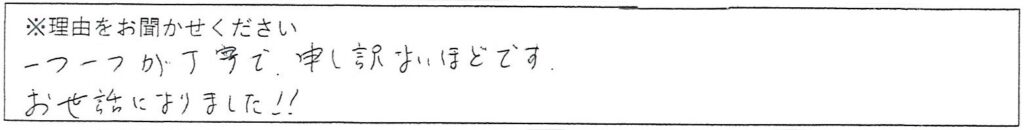 ※理由をお聞かせください
一つ一つが丁寧で、申し訳ないほどです.
お世話になりました!!